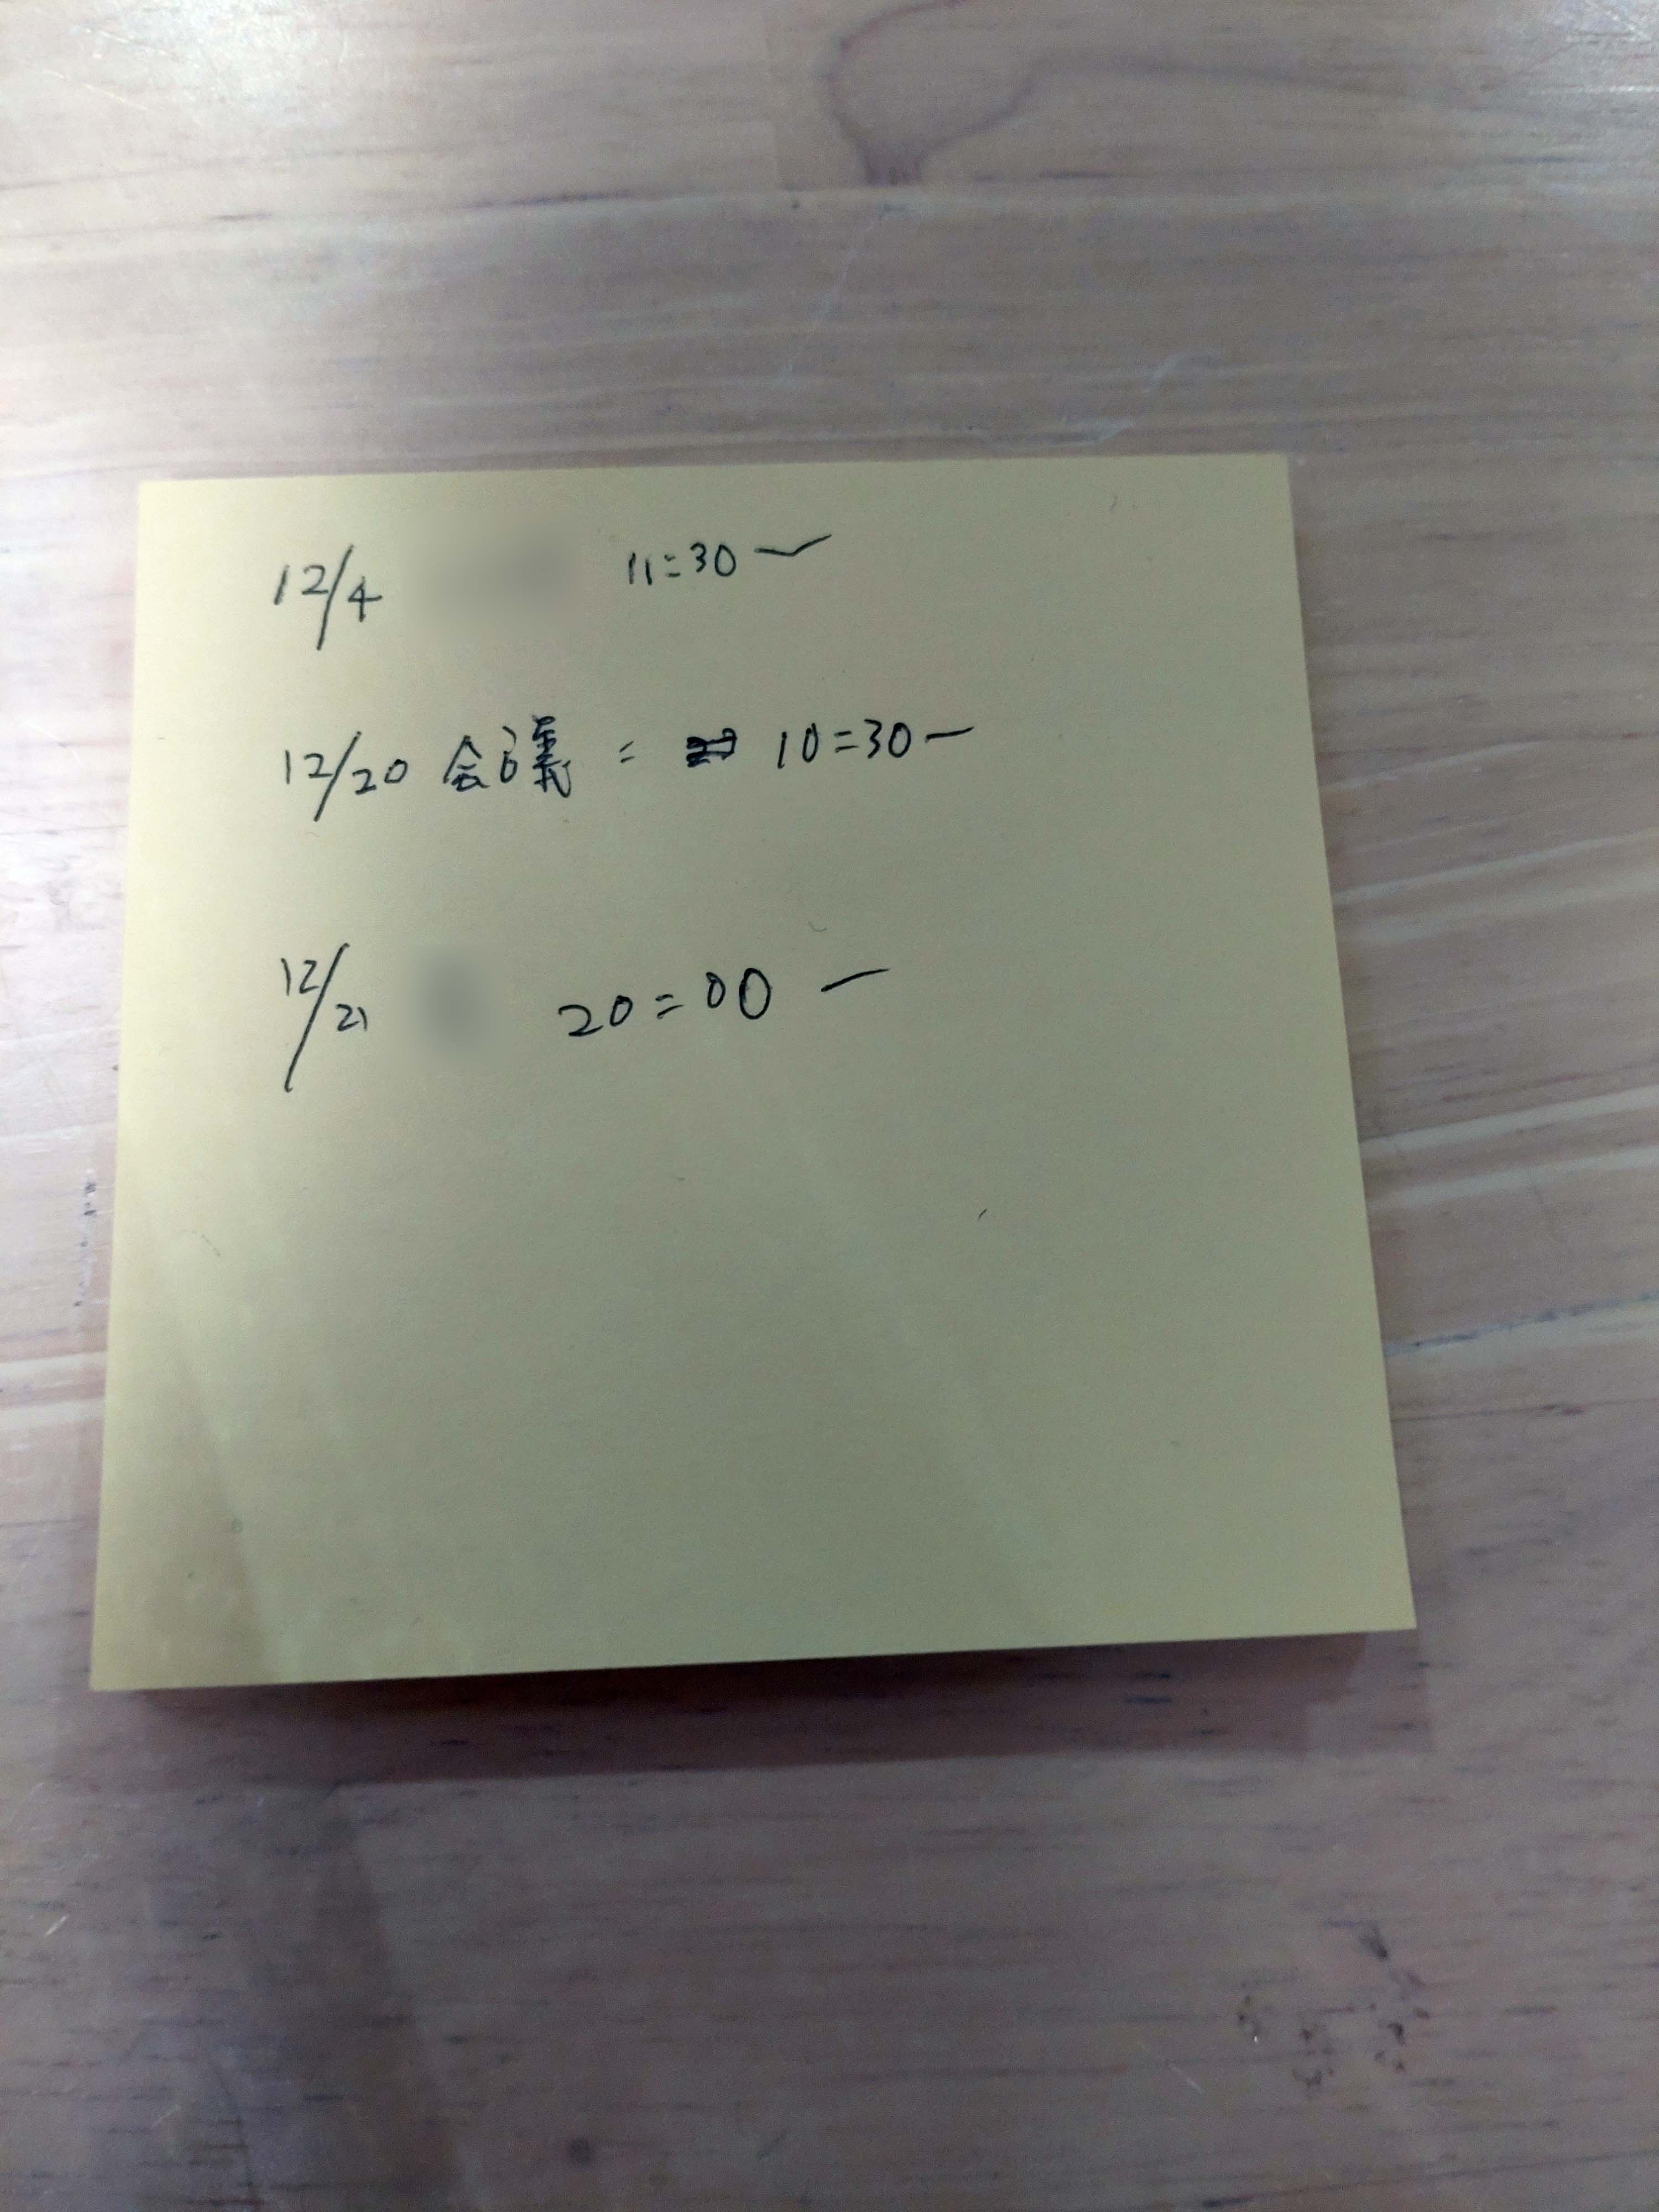 12/4 11:30〜
12/20 会議: 10:30ー
12/21 20:00 ー